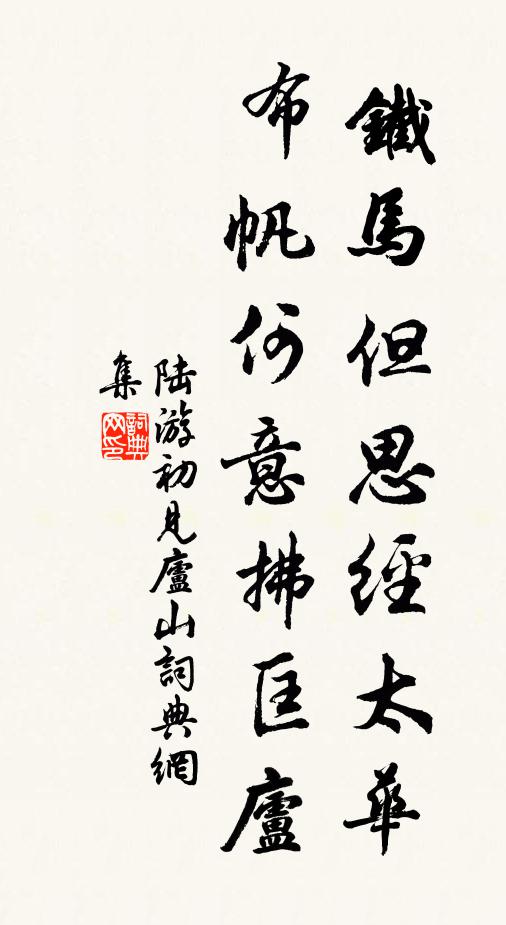 鐵馬但思經太華
布帆何意拂匡廬
陆游初见廬山詞典網
集
詞典
网印